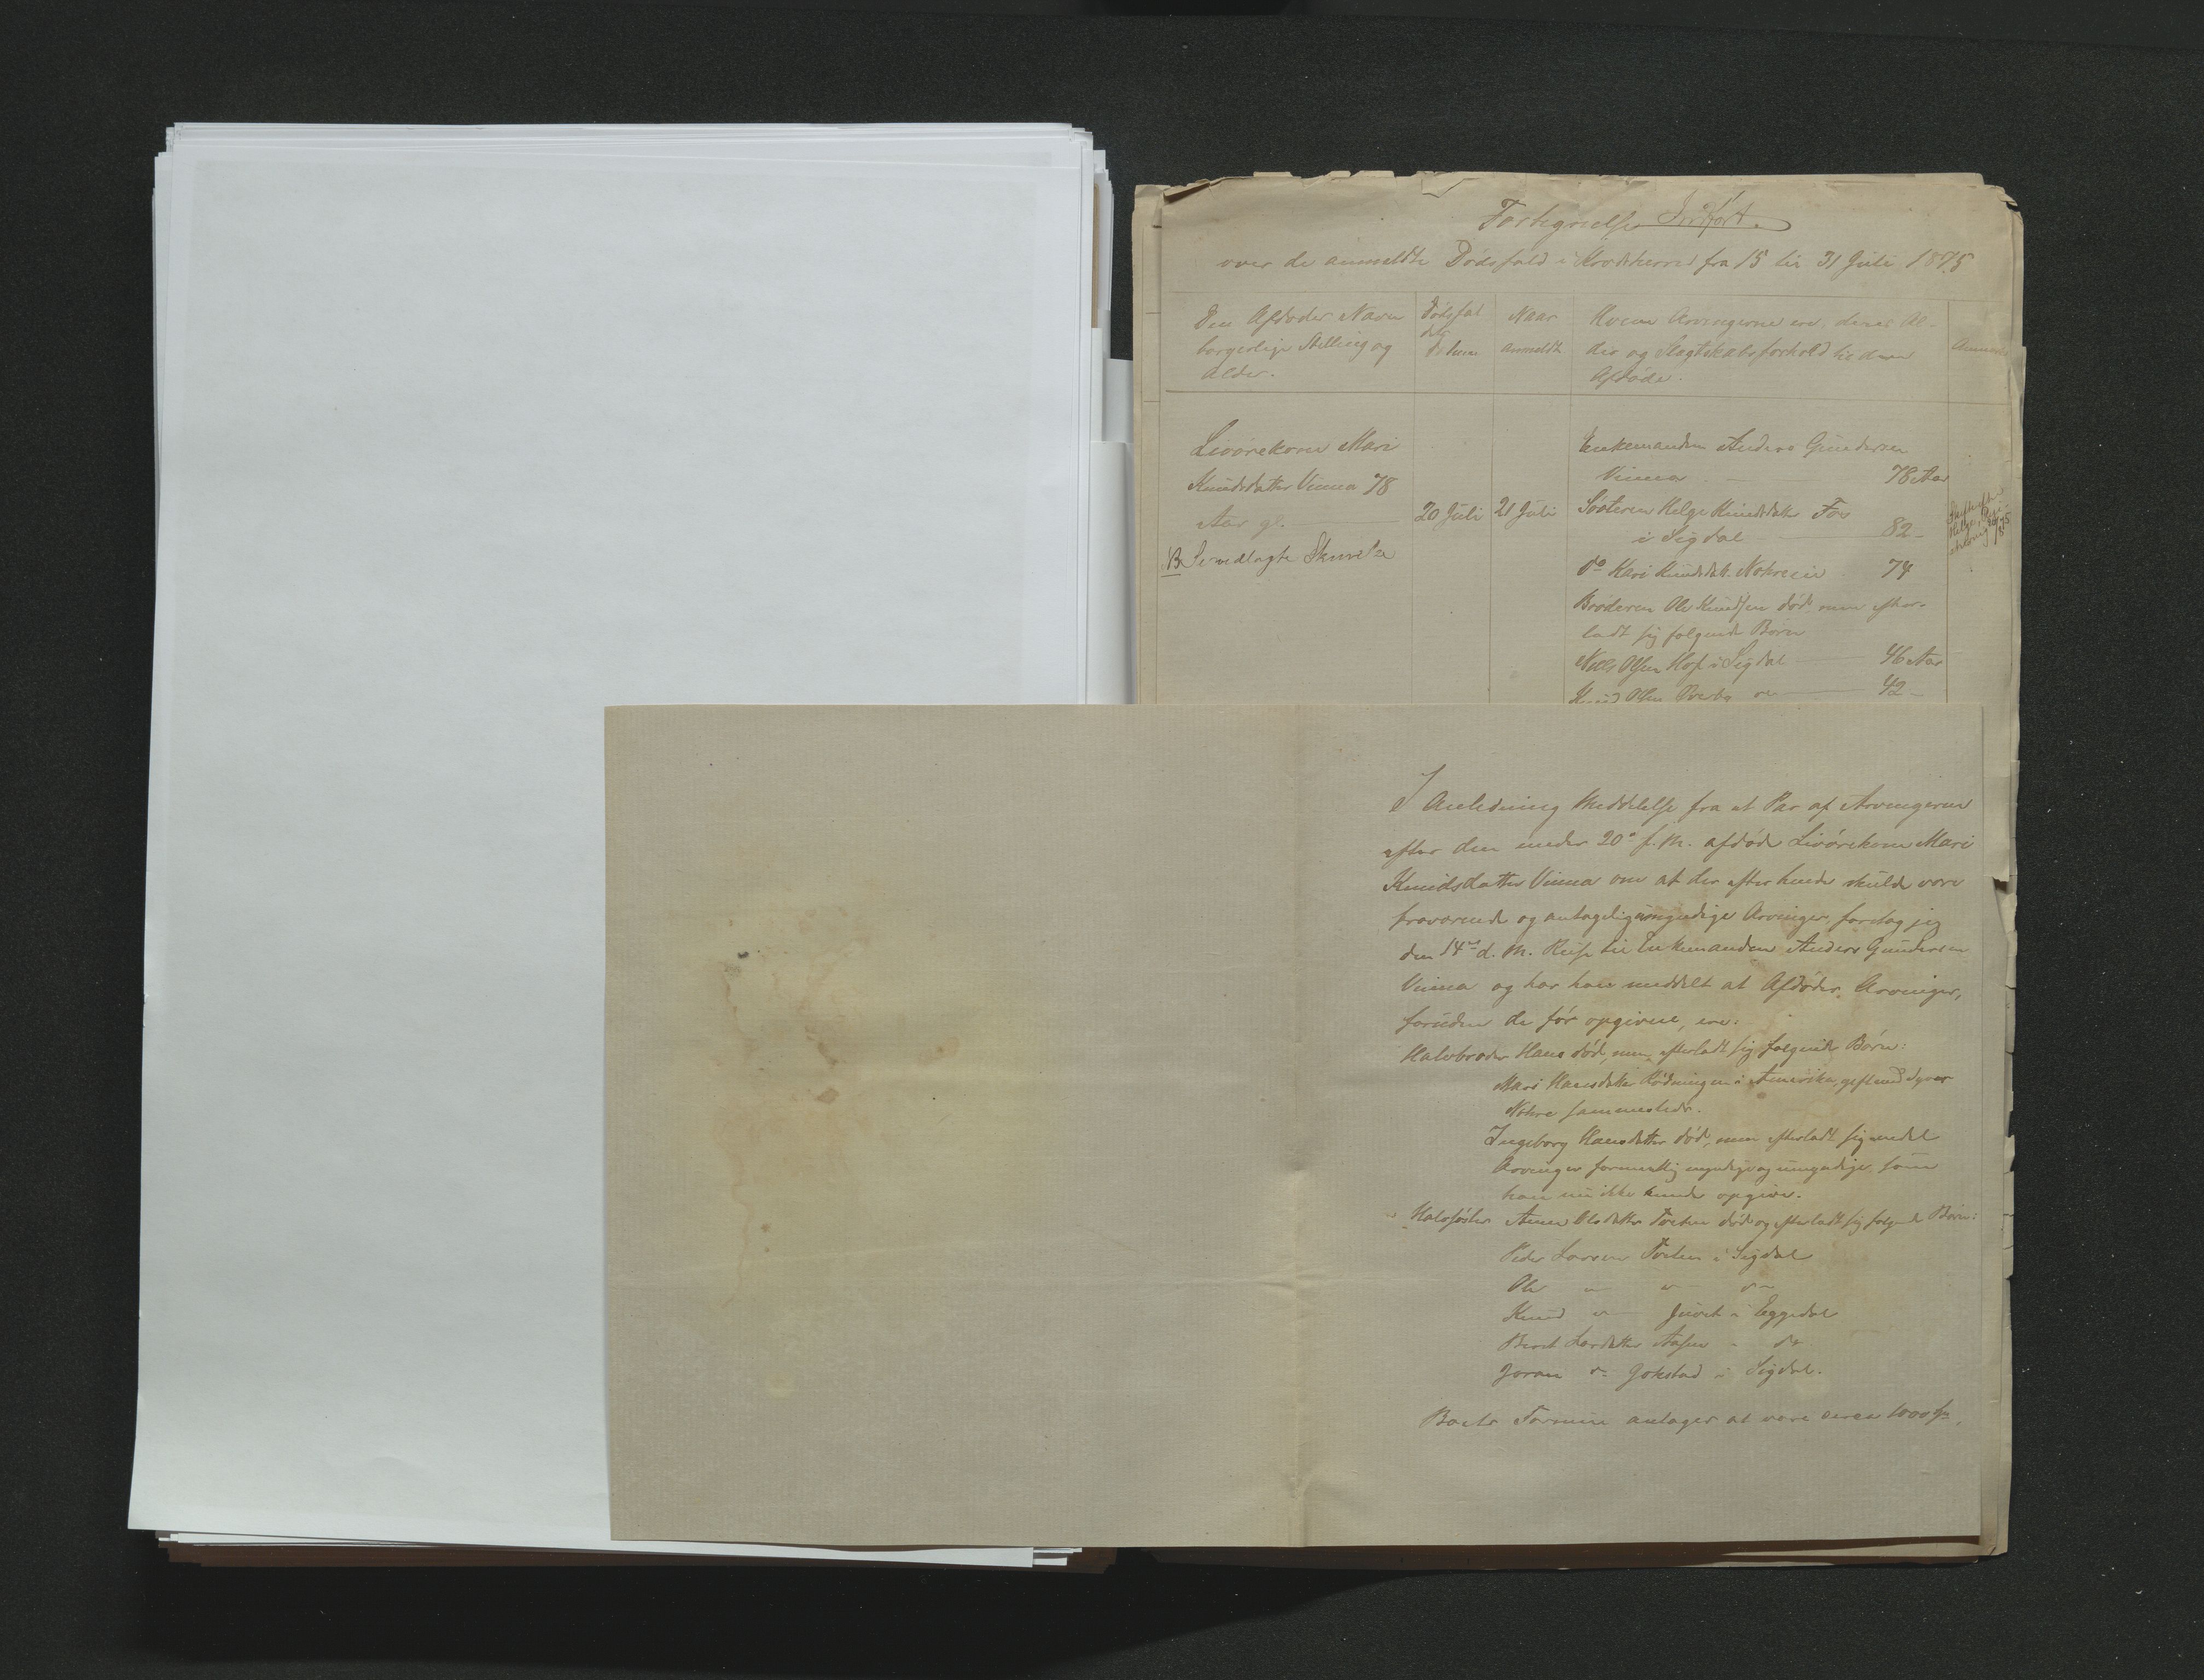 Fortegnelse Indført.
over de anmeldte Dødsfald i Krødsherred fra 15 til 31 Juli 1875
Den Afdødes Navn
borgerlige Stilling og
Alder.
Dødsfaldets
Datum
Naar
anmeldt
Hvem Arvingerne ere, deres Al-
der og Slægtskabsforhold til den
Afdøde.
Livørekone Mari
Knudsdatter Vinna 78
Aar gl.
20 Juli
21 Juli
NB Se vedlagte Skrivelse
Enkemanden Anders Gundersen
Vinna 78 Aar
Søsteren Helge Knudsdatter
i Sigdal 82 -
do Kari Knudsdatt. Nohre 74
Broderen Ole Knudsen død men efter-
ladt sig følgende Børn
Nils Olsen Hof i Sigdal 46 Aar
Knud Olsen 42 -
I Anledning Meddelelse fra et Par af Arvingerne
efter den under 20de f. M. afdøde Livørekone Mari
Knudsdatter Vinna om at der efter hende skulde være
fraværende og antagelig umyndige Arvinger, foretog jeg
den 14de d. M. Reise til Enkemanden Anders Gundersen
Vinna og har han meddelt at Afdødes Arvinger,
foruden de før opgivne, ere:
Halvbroder Hans død, men efterladt sig følgende Børn:
Mari Hansdatter Rødningen i Amerika, gift med Syver
Nohre sammesteds.
Ingeborg Hansdatter død, men efterladt sig endel
Arvinger formentlig myndige og umyndige, som
han nu ikke kunde opgive.
Halvsøster Anne Olsdatter død og efterladt sig følgende Børn:
Peder Larsen i Sigdal
Ole
Knud i Eggedal
Berit Larsdatter Aasen - do
Joran do Gokstad i Sigdal.
Boets Formue antages at være circa 1000